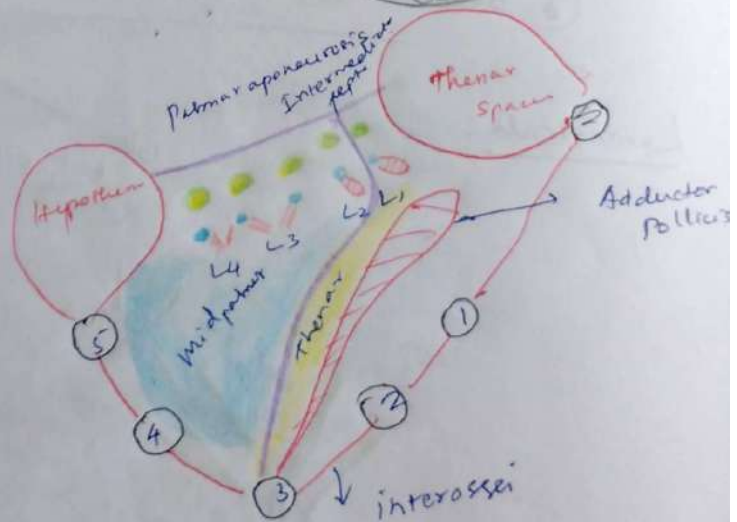 Palmar aponeurosis
Intermediate
septa
Thenar
Space
Hypothen
L4
L3
L2
L1
Adductor
Pollicis
Midpalmar
Thenar
5
4
3
2
1
↓ interossei